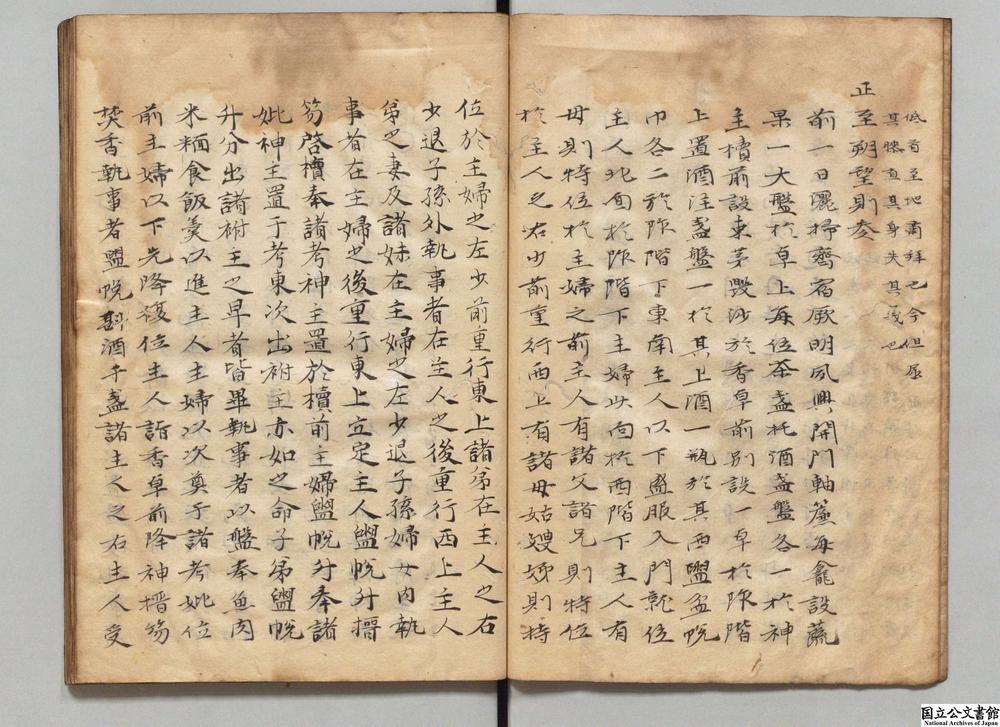 低首至地肅拜也今但屈
其膝直其身失其義也
正至朔望則參
前一日灑掃齊宿厥明夙興開門軸簾每龕設蔬
果一大盤於卓上每位茶盞托酒盞盤各一於神
主櫝前設束茅聚沙於香卓前別設一卓於阼階
上置酒注盞盤一於其上酒一瓶於其西盥盆帨
巾各二於阼階下東南主人以下盛服入門就位
主人北面於阼階下主婦北面於西階下主人有
母則特位於主婦之前主人有諸父諸兄則特位
於主人之右少前重行西上有諸母姑嫂姊則特
位於主婦之左少前重行東上諸弟在主人之右
少退子孫外執事者在主人之後重行西上主人
弟之妻及諸妹在主婦之左少退子孫婦女內執
事者在主婦之後重行東上立定主人盥帨升搢
笏啓櫝奉諸考神主置於櫝前主婦盥帨升奉諸
妣神主置于考東次出祔主亦如之命子弟盥帨
升分出諸祔主之卑者皆畢執事者以盤奉魚肉
米麺食飯羹以進主人主婦以次奠于諸考妣位
前主婦以下先降復位主人詣香卓前降神搢笏
焚香執事者盥帨斟酒于盞諸主人之右主人受
国立公文書館
National Archives of Japan